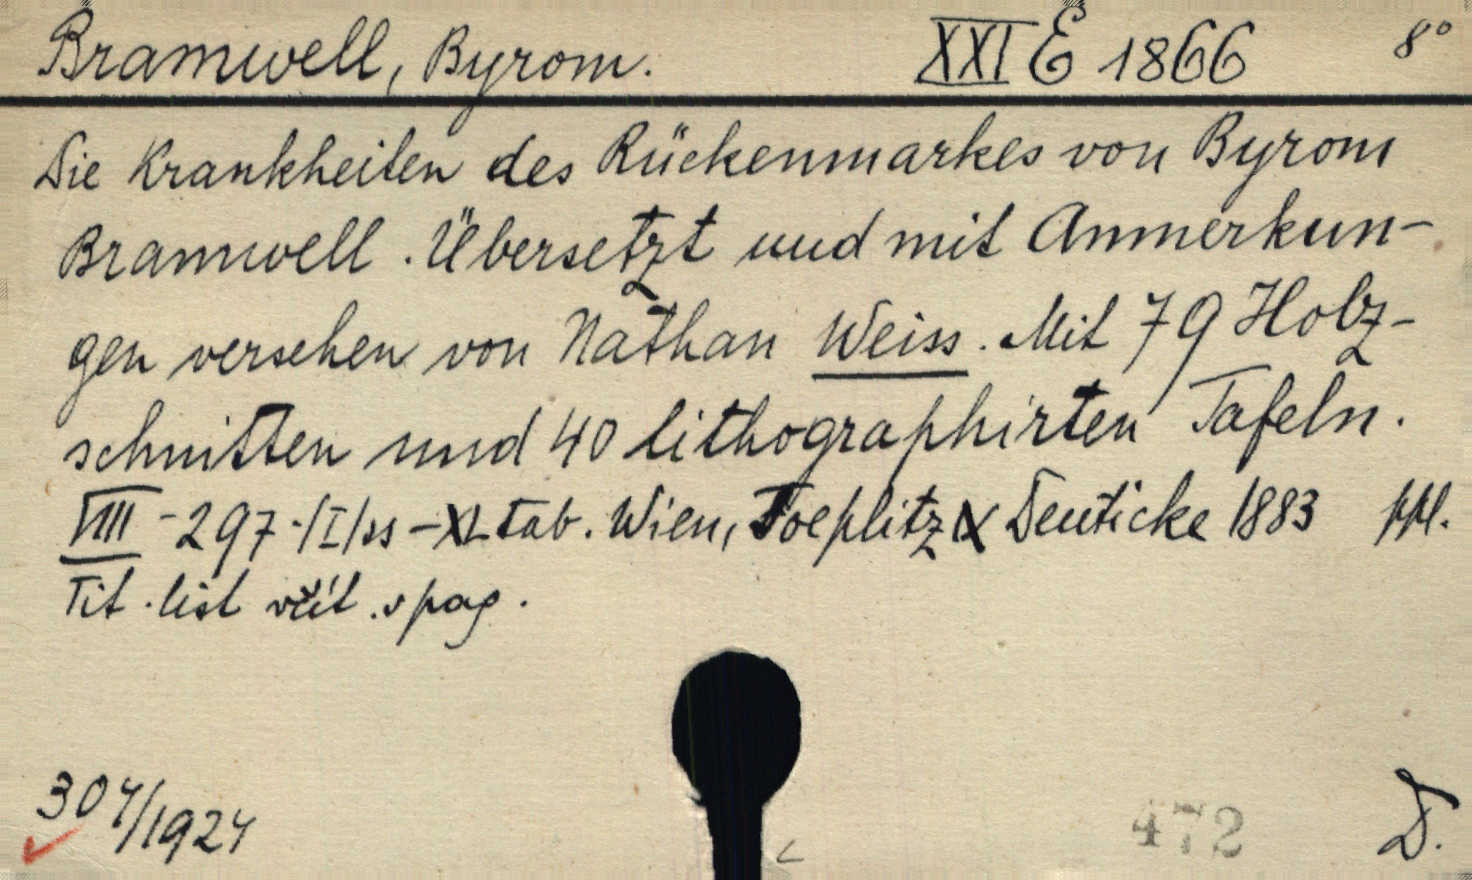 Bramwell, Byrom. XXI E 1866 8°
Die Krankheiten des Rückenmarkes von Byrom
Bramwell. Übersetzt und mit Anmerkun-
gen versehen von Nathan Weiss. Mit 79 Holz-
schnitten und 40 lithographirten Tafeln.
VIII-297-/I/ss-XL tab. Wien, Toeplitz & Deuticke 1883 ppl.
Tit. list včít. v pag.
304/1924
472 D.